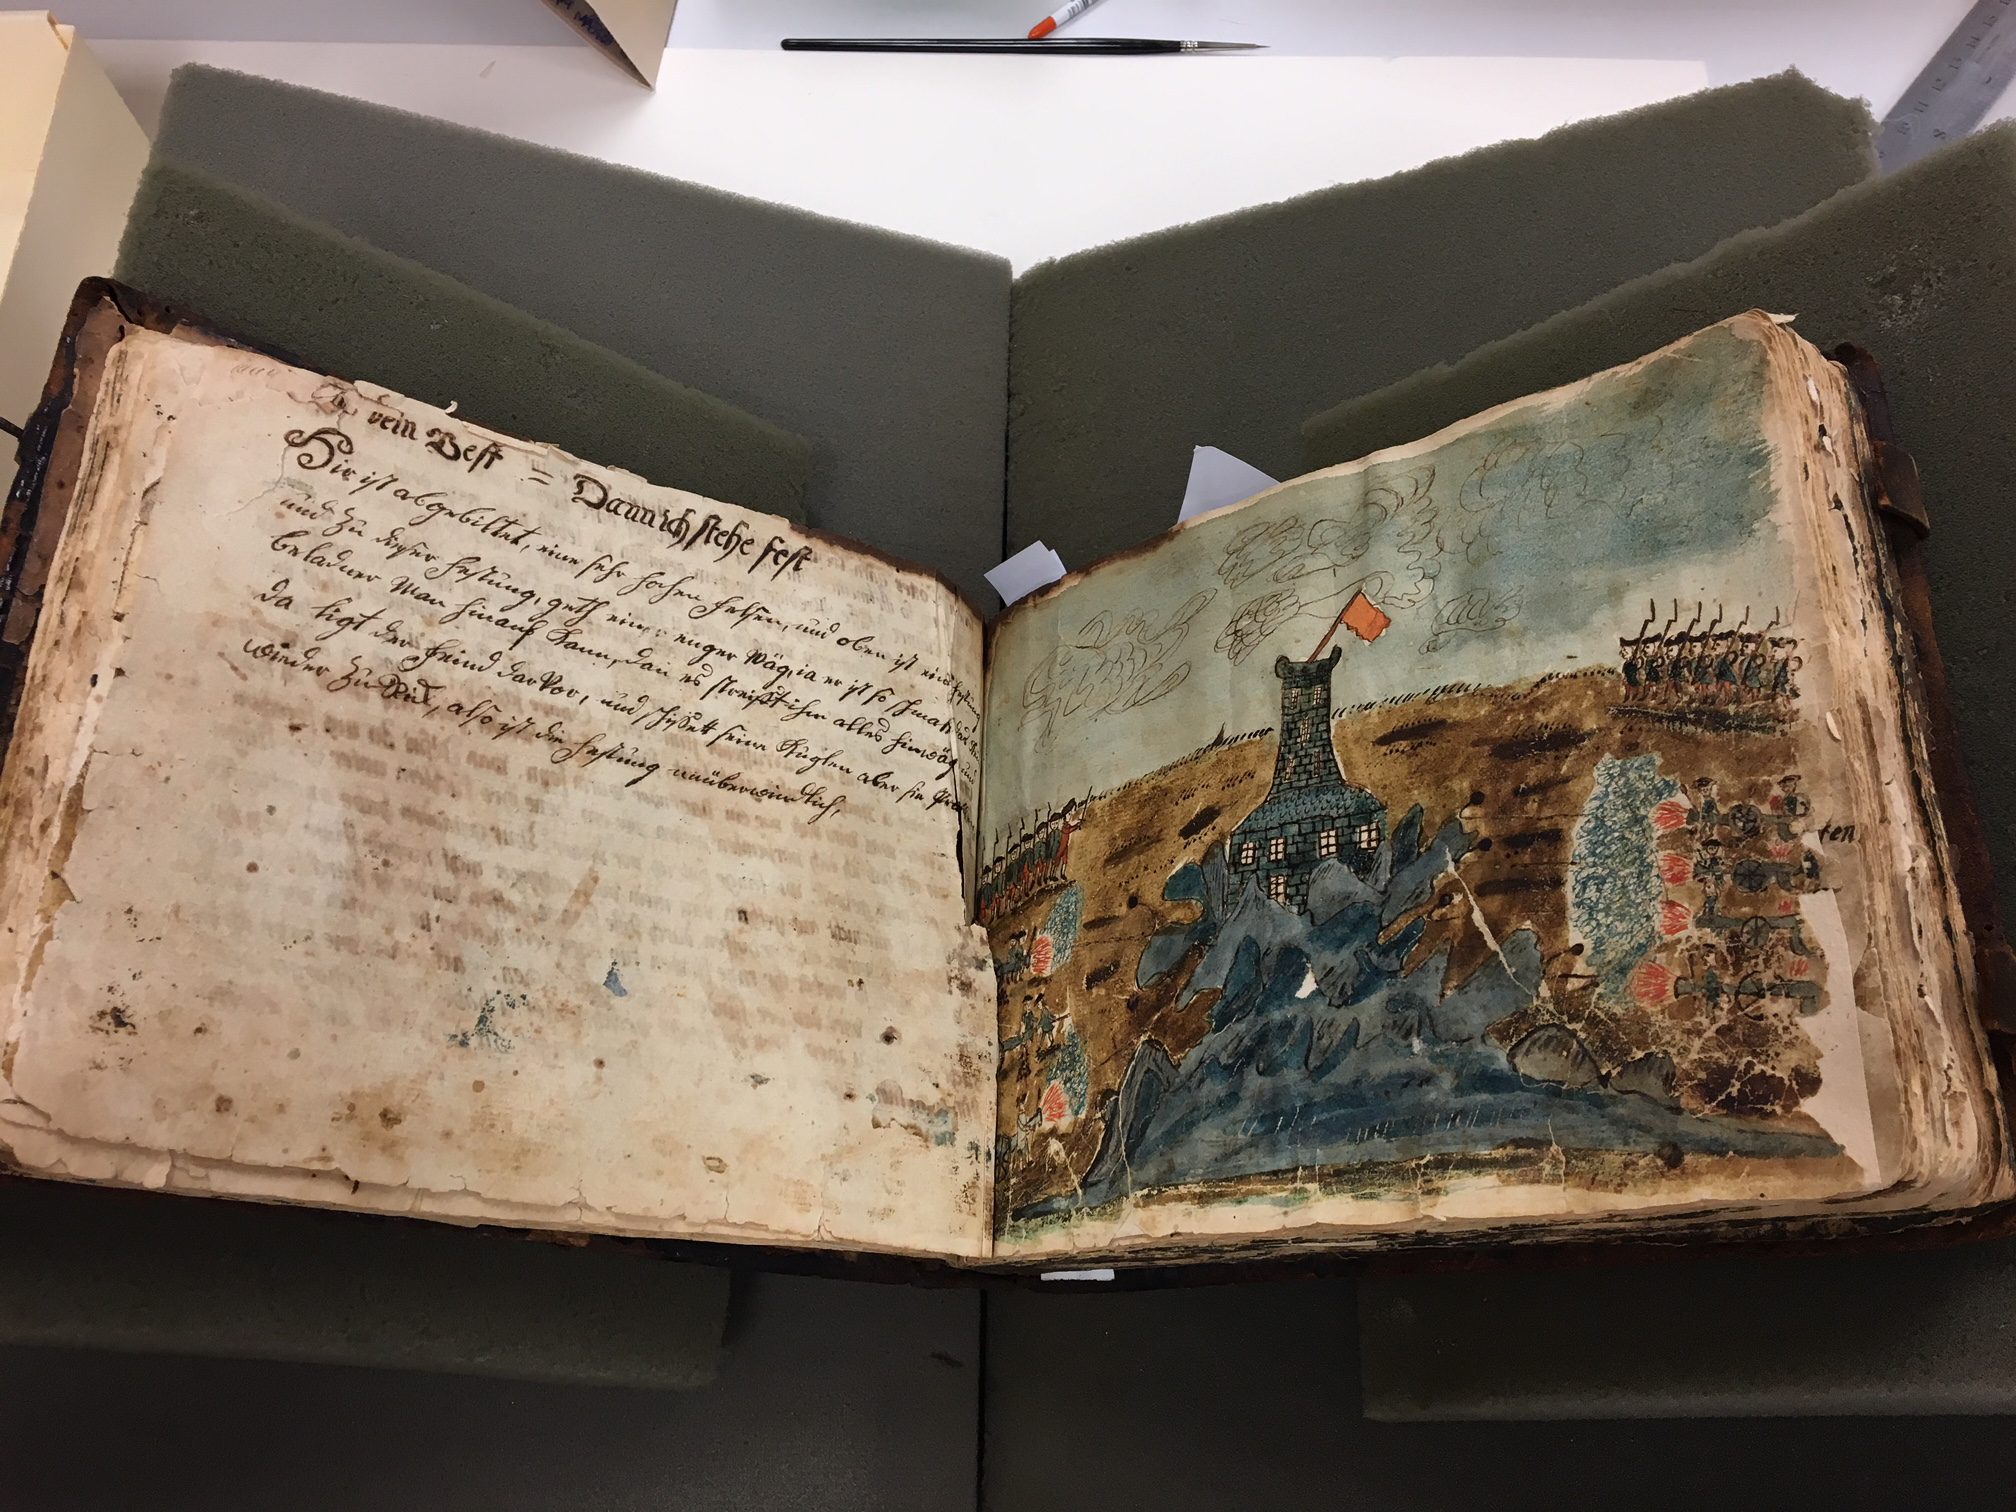 vein Vest = Dann ich stehe fest
Hir ist abgebiltet, eine sehr hochen Felsen, und oben ist eine Festung
und zu dieser Festung, geth ein enger Wäg, ia er ist so schmal, das
beladner Man hinauf kann, dan es streifft ihm alles hinwäg, und
da ligt der Feind darvor, und schisset seine Kuglen aber sie
wieder zu Ruk, also ist die Festung unüberwindlich,
ten